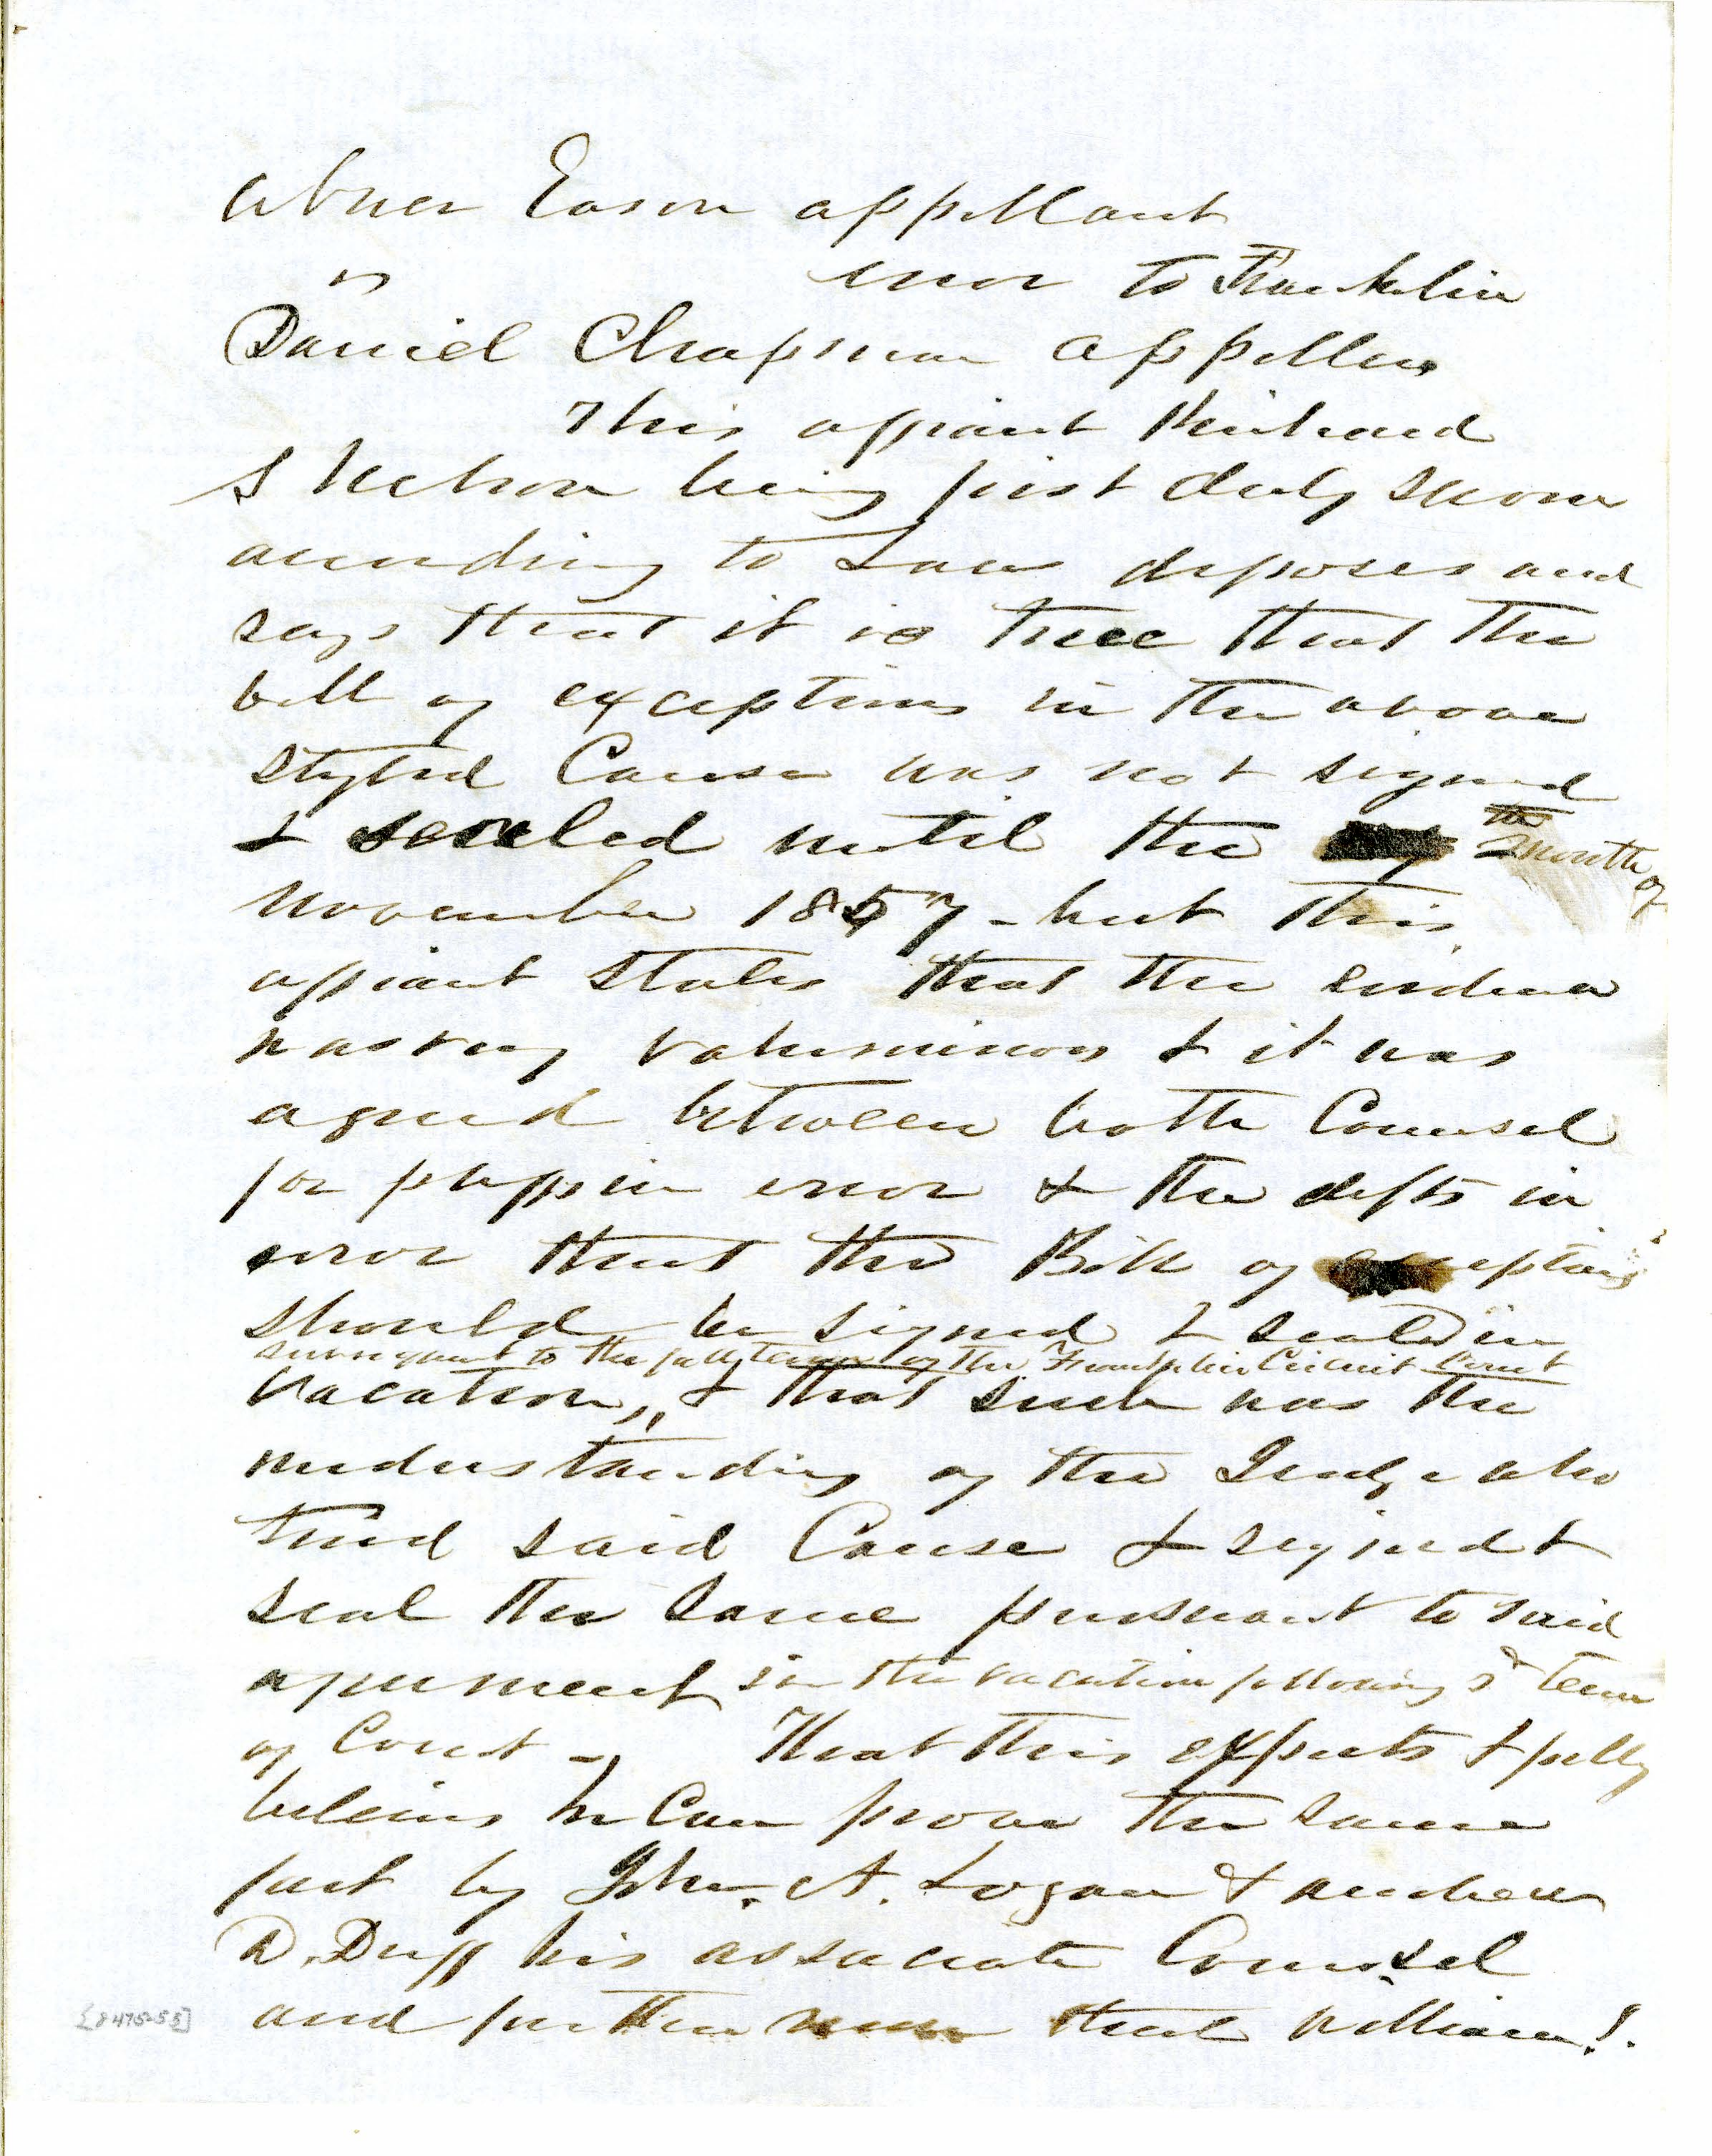 Abner Eason appellant
vs error to Franklin
Daniel Chapman appellee
This affiant Richard
S Nelson being first duly sworn
according to Law deposes and
says that it is true that the
bill of exceptions in the above
styled Cause was not signed
& sealed until the month of
November 1857 - but this
affiant states that the evidence
was very voluminous & it was
agreed between both Counsel
for plffs in error & the defts in
error that the Bill of exceptions
should be signed & sealed in
subsequent to the fall term of the Franklin Circuit Court
vacation, & that such was the
understanding of the Judge who
tried said Cause & signed &
seal the same pursuant to said
agreement in the vacation following sd term
of Court - That this expects & fully
believes he can prove the same
fact by John. A. Logan & Andrew
D. Duff his associate Counsel
and further that William J.
[8475-55]